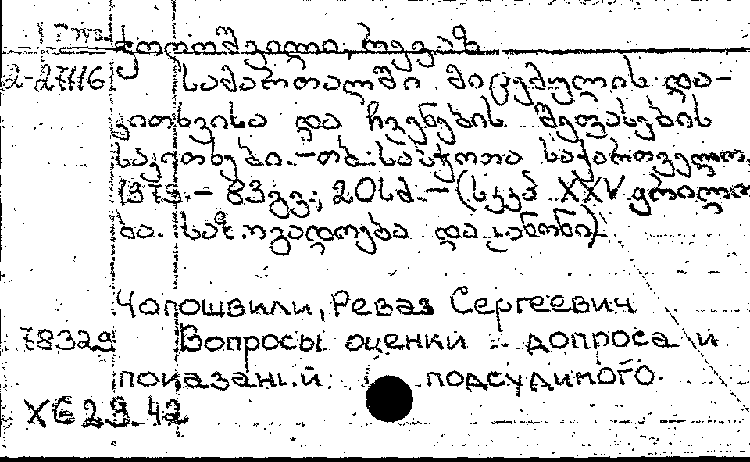 Груз. ჭოღოშვილი, რევაზ
2-27116 სამართალში მიცემულის და-
კითხვისა და ჩვენების შეფასების
საკითხები. - თბ. საბჭოთა საქართველო,
1973. - 83გვ.; 20სმ. - (სკკპ XXV ყრილო
ბა. საზოგადოება და კანონი)
Чогошвили, Реваз Сергеевич
78329 Вопросы оценки допроса и
показаний подсудимого.
ХЕ 29.42